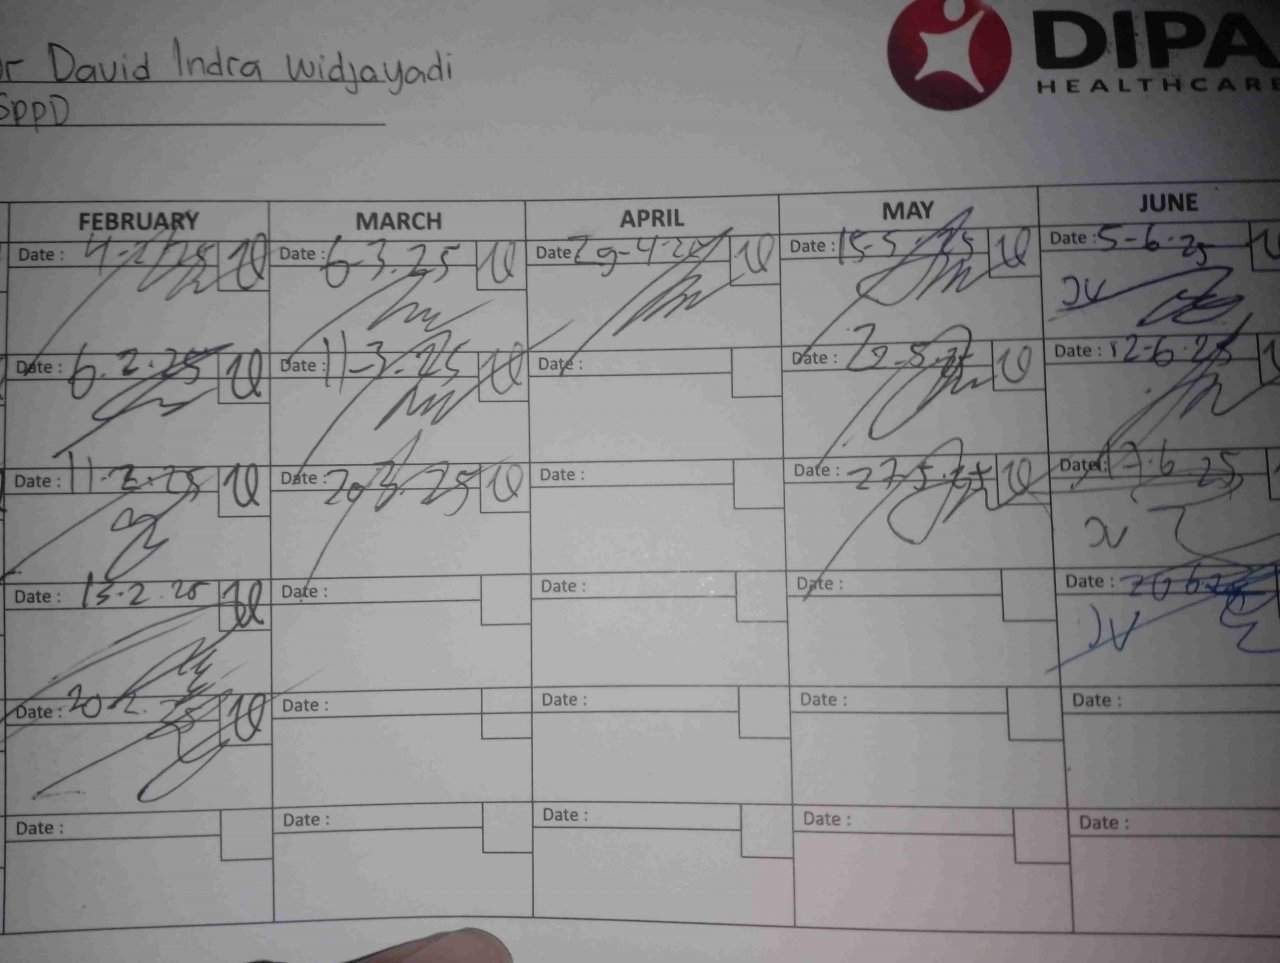 Dr David Indra Widjayadi
SPPD
DIPA
HEALTHCARE
FEBRUARY MARCH APRIL MAY JUNE
Date : 4-2-25 Date : 6-3.25 Date 29-4-25 Date : 15-5-25 Date : 5-6-25
JV
Date : 6.2.25 Date : 11-3-25 Date : Date : 22-5-25 Date : 12-6-25
Date : 11.2.25 Date : 20-3-25 Date : Date : 27-5-25 Date : 17.6.25
JV
Date : 15.2.25 Date : Date : Date : Date : 20 6 25
JV
Date : 20.2.25 Date : Date : Date : Date :
Date : Date : Date : Date : Date :